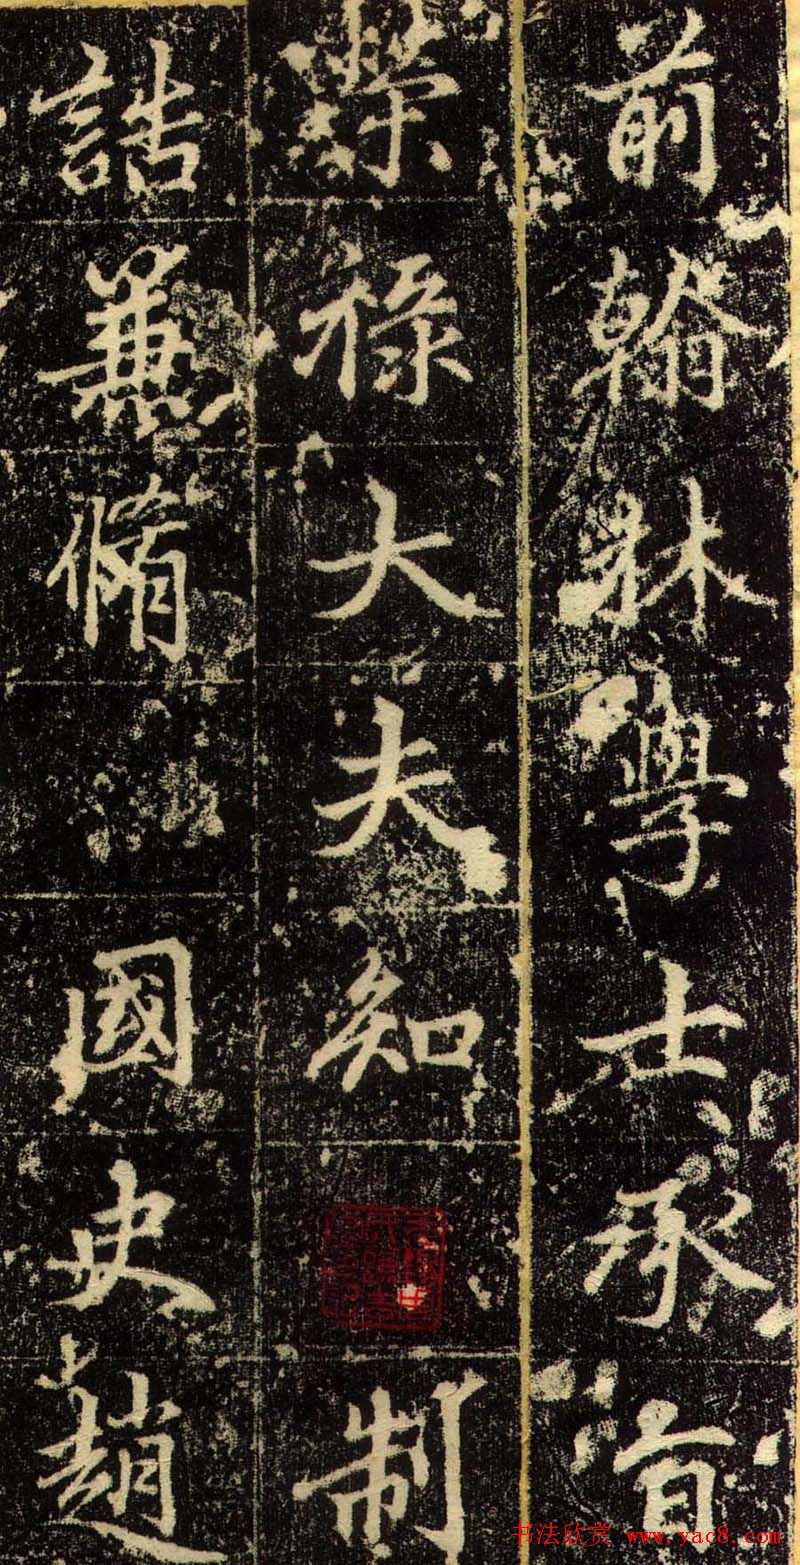 前翰林學士承旨
榮祿大夫知制
誥兼脩國史趙
书法欣赏 www.yac8.com